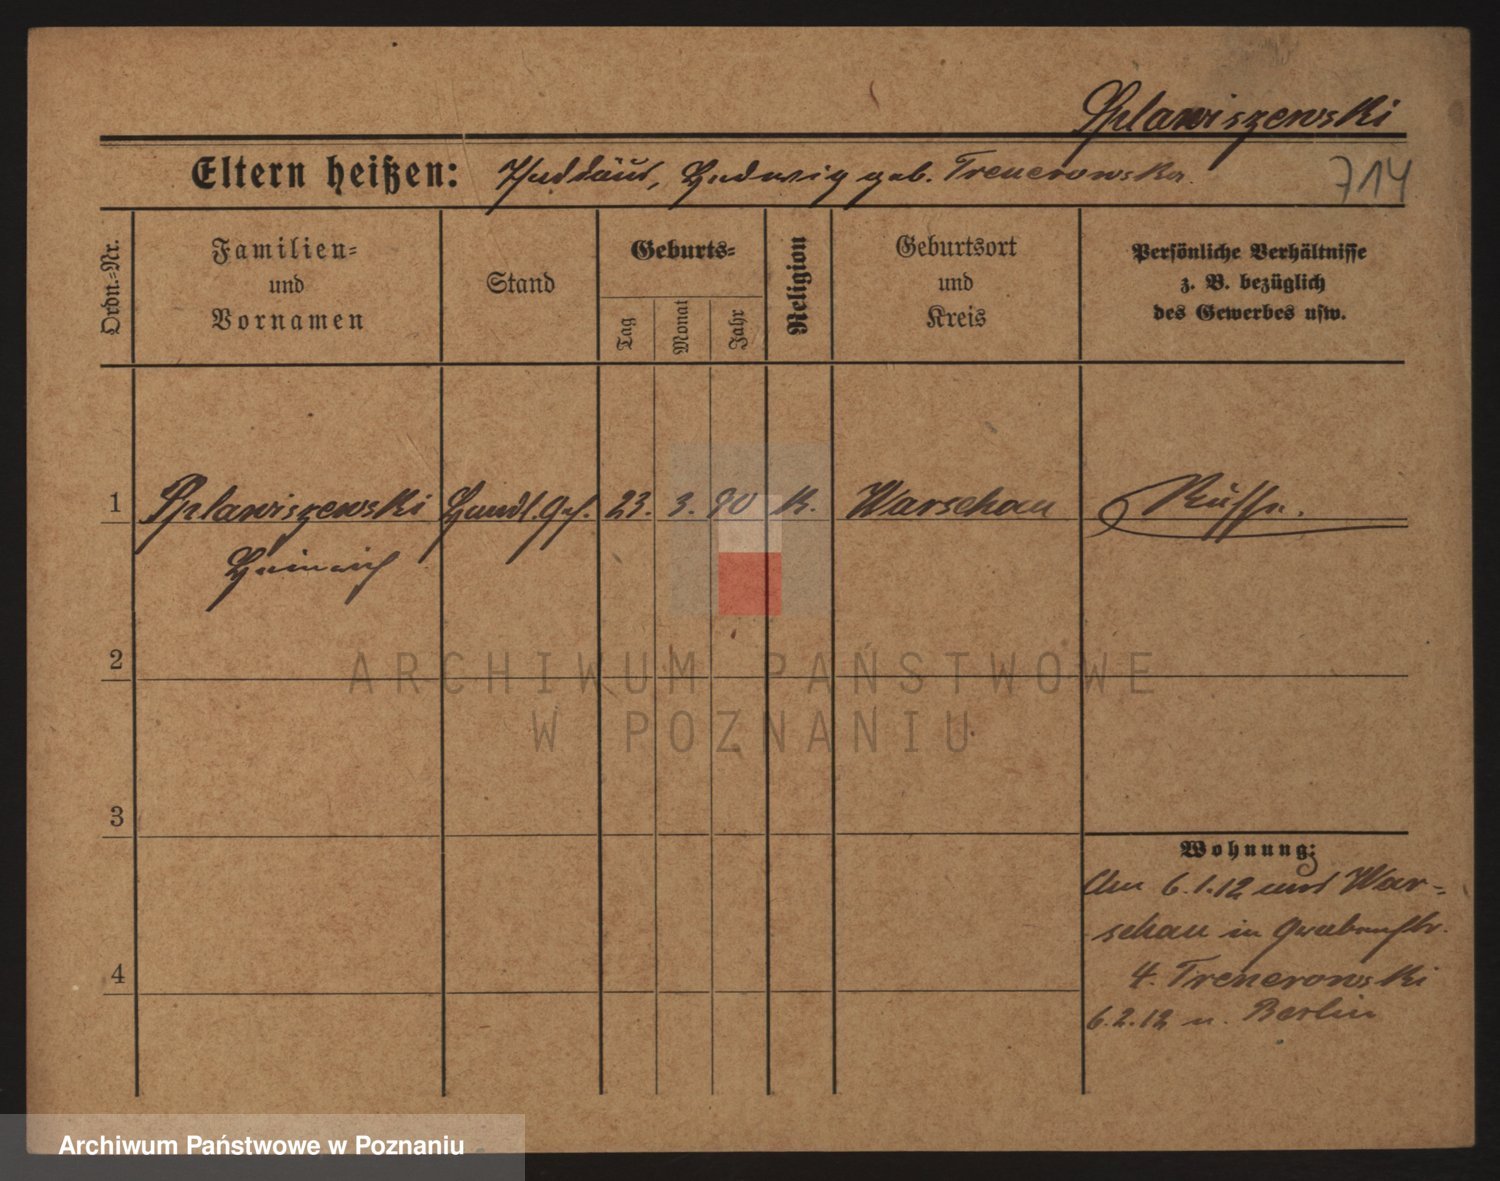 Splawiszewski
Eltern heißen: Thaddäus, Hedwig geb. Trenerowska
714
Ordn.=Nr.
Familien=
und
Vornamen
Stand
Geburts=
Tag
Monat
Jahr
Religion
Geburtsort
und
Kreis
Persönliche Verhältnisse
z. B. bezüglich
des Gewerbes usw.
1 Splawiszewski Handl. Geh. 23. 3. 90 K. Warschau Russe.
Heinrich
2
3
4
Wohnung:
Am 6.1.12 aus War=
schau in Grabenstr.
4. Trenerowski
6.2.12 n. Berlin
ARCHIWUM PAŃSTWOWE
W POZNANIU
Archiwum Państwowe w Poznaniu